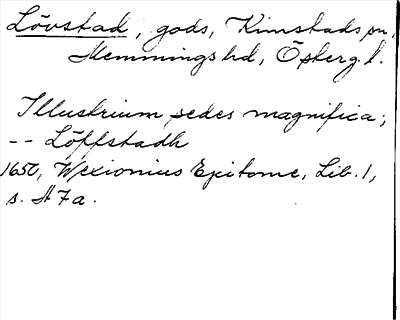 Lövstad, gods, Kimstads sn,
Memmings hd, Östergl.
Illustrium sedes magnifica;
-- Löffstadh
1650, Wexionius Epitome, Lib. 1,
s. A 7 a.